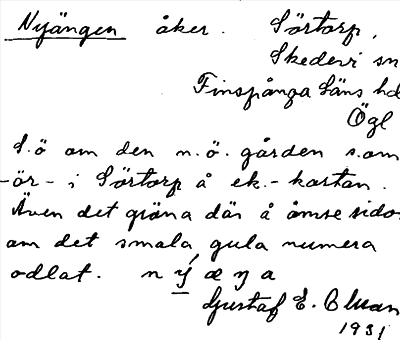 Nyängen åker. Sörtorp,
Skedevi sn
Finspånga läns hd
Ögl
S.ö om den n.ö. gården s.om
-ör- i Sörtorp å ek.-kartan.
Även det gröna där å ömse sidor
om det smala, gula numera
odlat. n ý æ ŋ a
Gustaf E. Bluan
1931